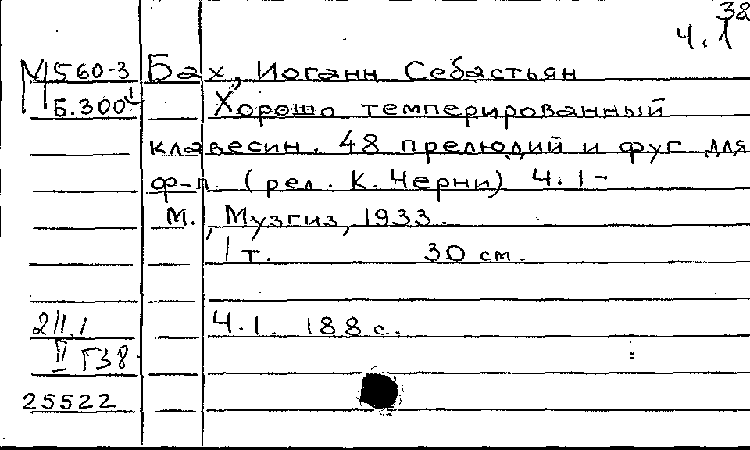 38
ч. 1
М 560-3 Бах, Иоганн Себастьян
Б. 300 Хорошо темперированный
клавесин. 48 прелюдий и фуг для
ф-п. (рел. К. Черни) Ч. 1-
М., Музгиз, 1933.
1 т. 30 см.
2 II. 1 Ч. 1. 188 с.
II Г38
25522